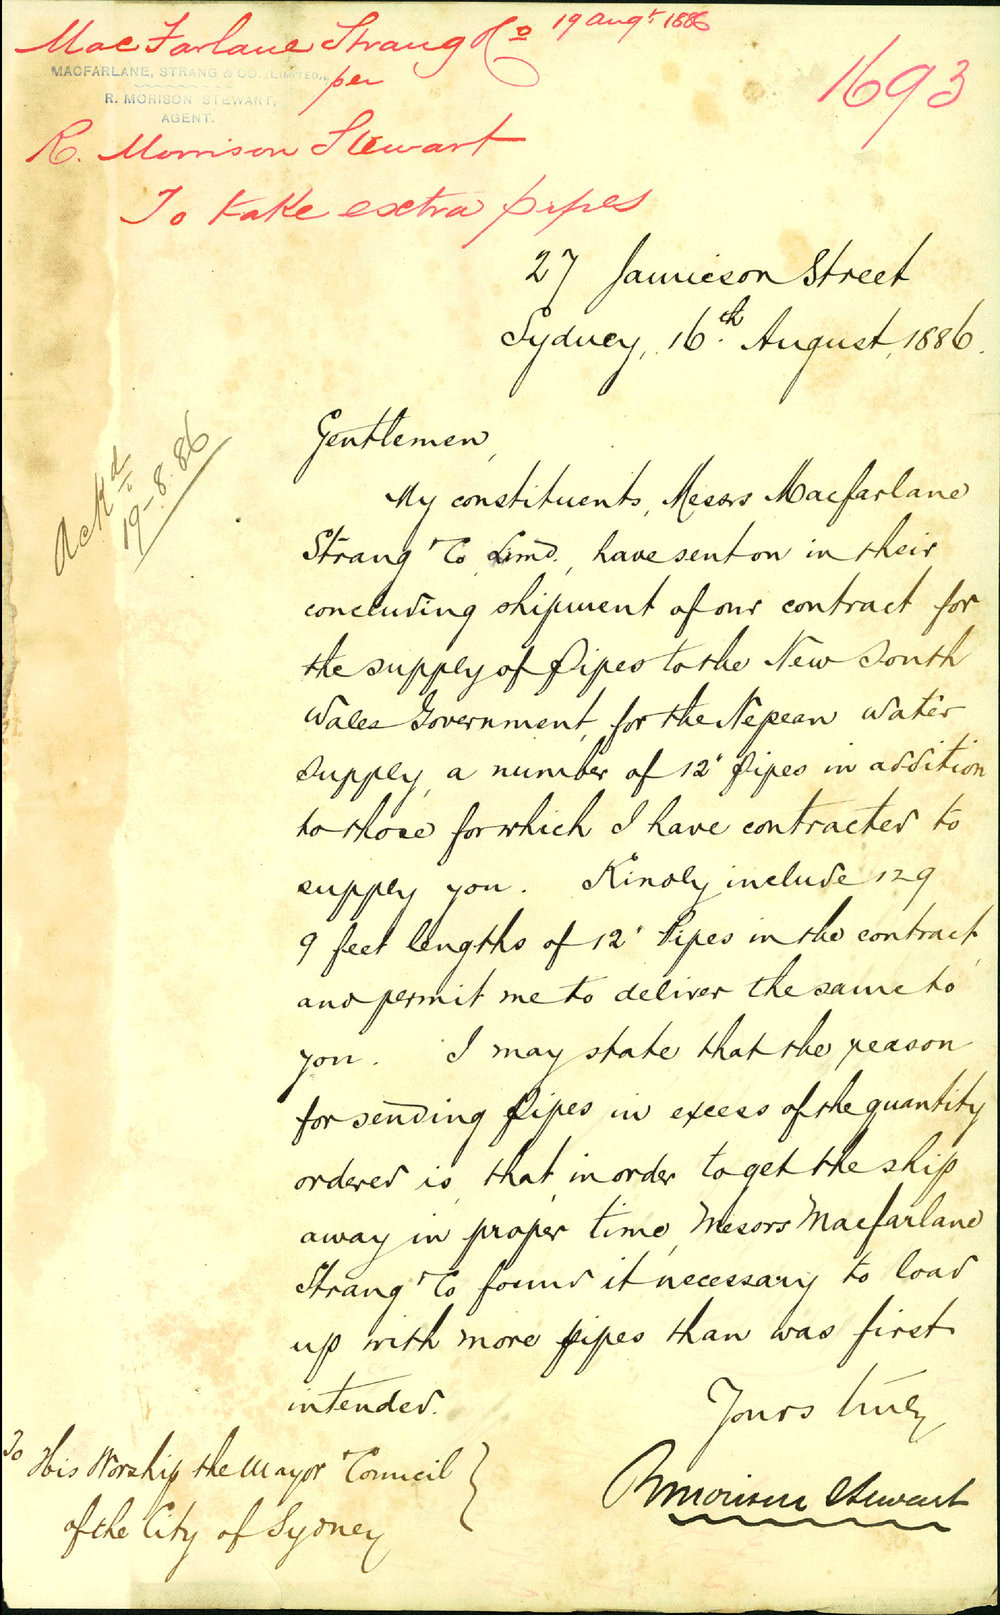 MacFarlane Strang & Co 19 Augt 1886
MACFARLANE, STRANG & CO., LIMITED,
per
R. MORISON STEWART,
AGENT.
1693
R. Morrison Stewart
To take extra pipes
27 Jamieson Street
Sydney, 16th August, 1886.
Ackd
19-8.86
Gentlemen,
My constituents, Messrs Macfarlane
Strang & Co Limd., have sent on in their
concluding shipment of our contract for
the supply of Pipes to the New South
Wales Government, for the Nepean Water
Supply, a number of 12" Pipes in addition
to those for which I have contracted to
supply you. Kindly include 129
9 feet lengths of 12" Pipes in the contract,
and permit me to deliver the same to
you. I may state that the reason
for sending Pipes in excess of the quantity
ordered is, that, in order to get the ship
away in proper time, Messrs Macfarlane
Strang & Co found it necessary to load
up with more pipes than was first
intended.
Yours truly
R Morison Stewart
To His Worship the Mayor & Council
of the City of Sydney